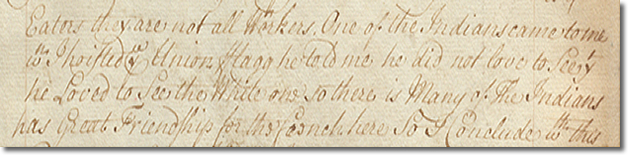 Eators they are not all Workers. One of the Indians came to me
wn I hoisted ye Union flagg he told me he did not love to See yt
he Loved to See the White one so there is Many of The Indians
has Great Friendship for the French here So I Conclude wth this